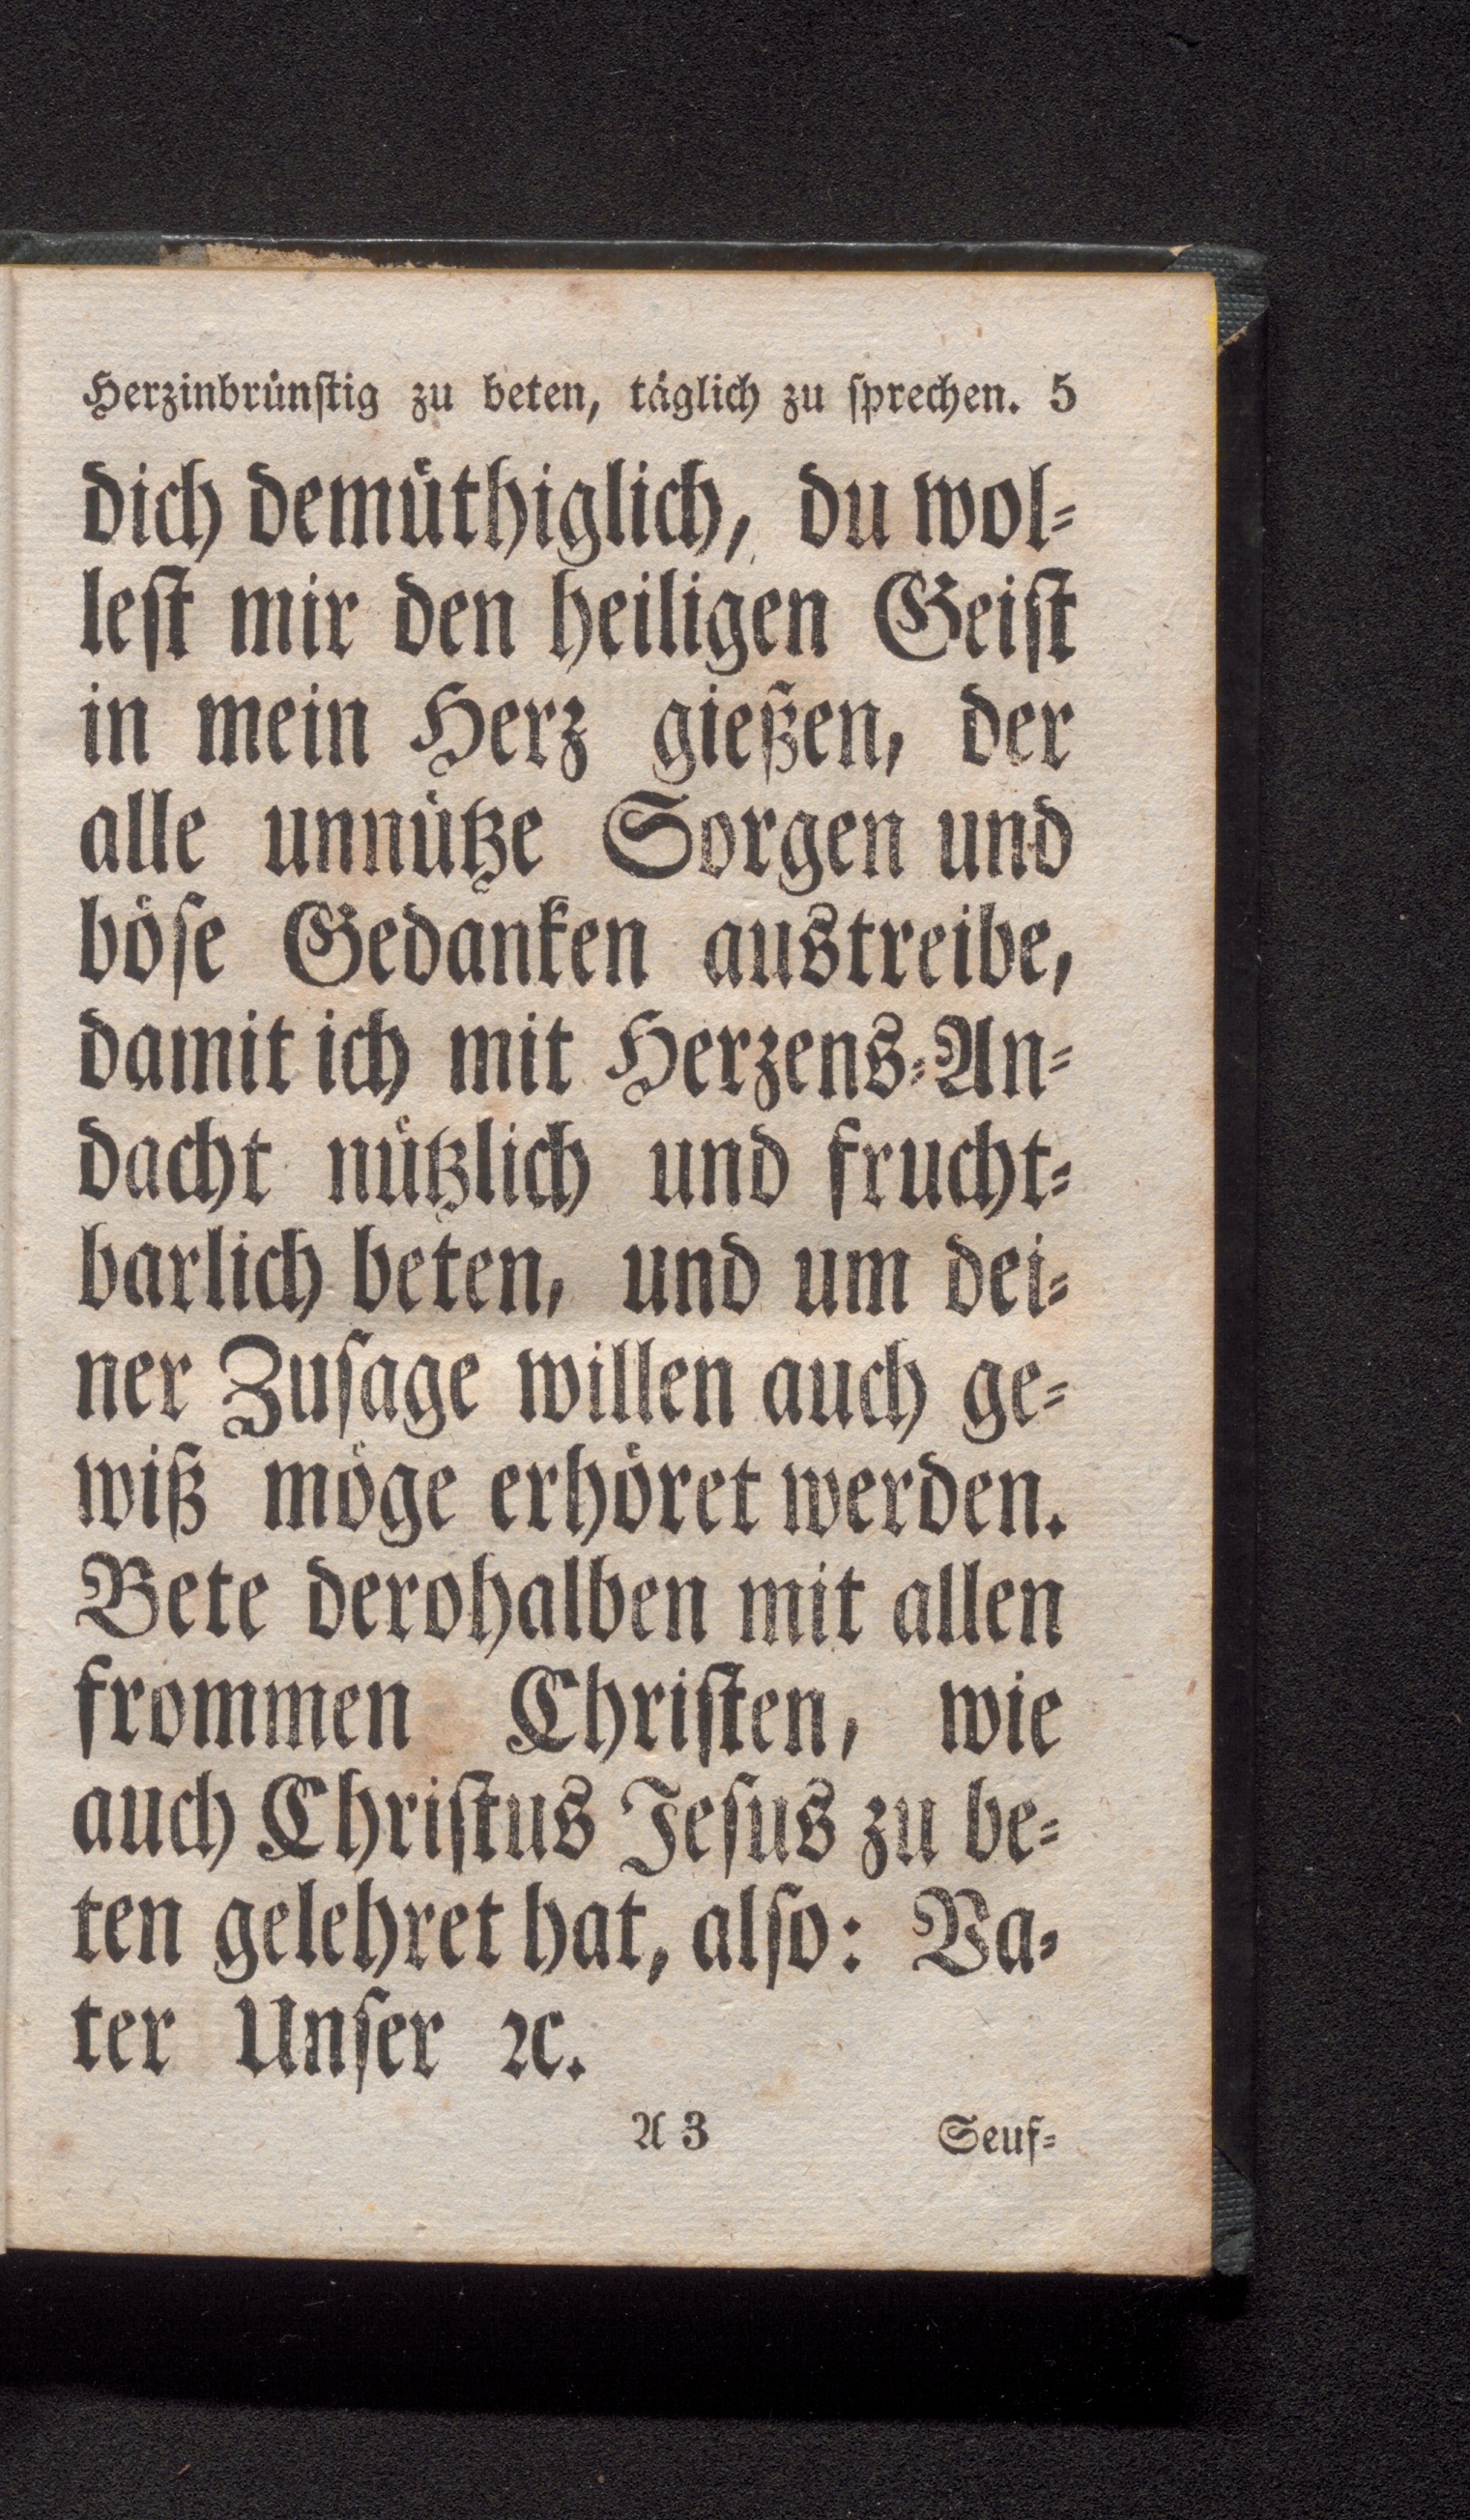 Herzinbrünſtig zu beten, täglich zu ſprechen. 5
dich demüthiglich, du wol⸗
leſt mir den heiligen Geiſt
in mein Herz gießen, der
alle unnütze Sorgen und
böſe Gedanken austreibe,
damit ich mit Herzens⸗An⸗
dacht nützlich und frucht⸗
barlich beten, und um dei⸗
ner Zuſage willen auch ge⸗
wiß möge erhöret werden.
Bete derohalben mit allen
frommen Chriſten, wie
auch Chriſtus Jeſus zu be⸗
ten gelehret hat, alſo: Va⸗
ter Unſer ꝛc.
A 3 Seuf⸗